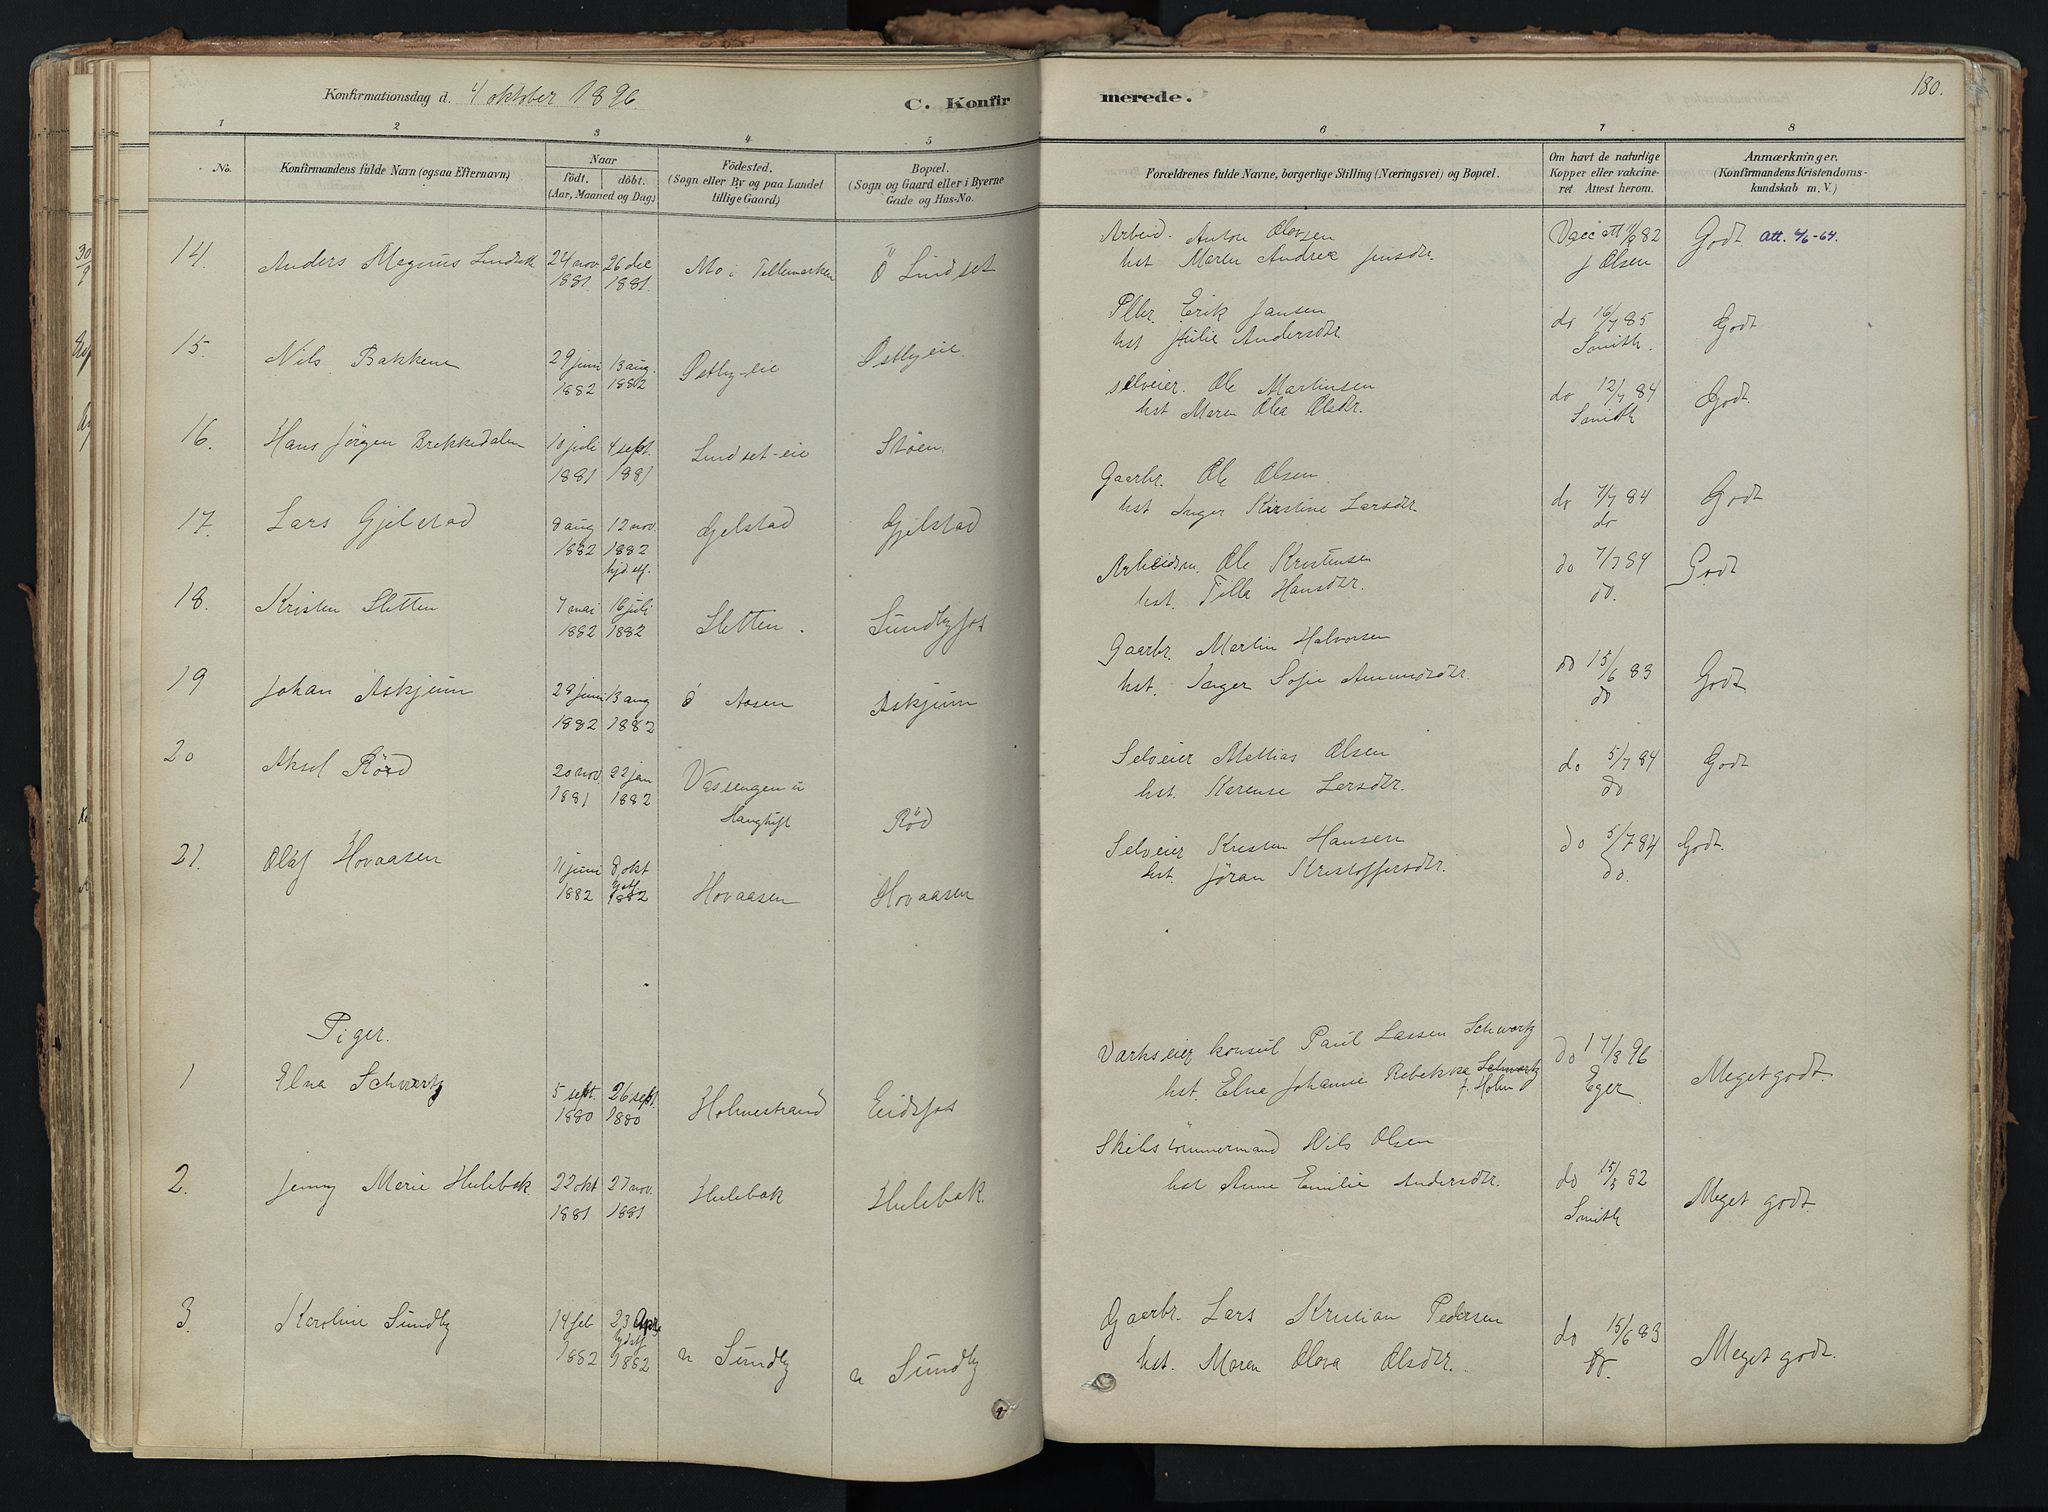 Konfirmationsdag d. 4 oktober 1896.
C. Konfir
merede.
180.
1 2 3 4 5 6 7 8
No.
Konfirmandens fulde Navn (ogsaa Efternavn)
Naar
födt. döbt.
(Aar, Maaned og Dag)
Födested.
(Sogn eller By og paa Landet
tillige Gaard)
Bopæl.
(Sogn og Gaard eller i Byerne
Gade og Hus-No.
Forældrenes fulde Navne, borgerlige Stilling (Næringsvei) og Bopæl.
Om havt de naturlige
Kopper eller vakcine-
ret. Attest herom.
Anmærkninger.
(Konfirmandens Kristendoms-
kundskab m. V.)
14. Anders Magnus Lindset 24 nov. 1881. 26 dec 1881. Mo i Tellemarken Ö Lindset
Arbeid. Anton Olavsen
hst Maren Andrea Jensdtr.
82
J Olsen
Godt Att. 4/6-64.
15. Nils Bakkene 29 juni 1882 13 aug. 1882 Østby-eie Østbyeie
Pllr. Erik Jansen
hst Julie Andersdtr
do 16/7 85
Smith.
Godt
16. Hans Jörgen Brekkedalen 10 juli 1881 4 sept. 1881 Lindset-eie Stöen.
selveier. Ole Martinsen
hst Maren Olea Olsdtr.
do 12/7 84
Smith
Godt.
17. Lars Gjelstad 8 aug 1882 12 nov. 1882 hjd. Gjelstad Gjelstad
Gaarbr. Ole Olsen
hst Inger Kirstine Larsdtr.
do 7/7 84
do
Godt
18. Kristen Sletten 7 mai 1882 16 juli 1882 Sletten. Sundbyfos
Arbeidsm. Ole Kristensen
hst. Tilla Hansdtr.
do 7/7 84
do.
Godt
19 Johan Askjum 28 juni 1882 13 aug 1882 Ö Aasen Askjum
Gaarbr. Martin Halvorsen
hst. Inger Sofie Amundsdtr.
do 15/6 83
do
Godt
20 Aksel Röed 20 nov. 1881 22 jan 1882 Vassengen u Haugtuft Röd
Selveier Mathias Olsen
hst. Karense Larsdtr.
do 5/7 84
do
Godt
21. Olaf Hovaasen 11 juni 1882 8 okt 1882 Hovaasen Hovaasen
Selveier Kristen Hansen
hst. Jöran Kristoffersdtr.
do 5/7 84
do.
Godt.
Piger.
1 Elna Schwartz 5 sept. 1880 26 sept. 1880 Holmestrand Eidsfos
Værkseier konsul Paul Lassen Schwartz
hst. Elna Johanne Rebekka Schwartz
f. Holm
do 17/3 96
Eger.
Meget godt.
2. Jenny Marie Hulebak 22 okt 1881 27 nov. 1881 Hulebak Hulebak.
Skibstömmermand Nils Olsen
hst Anne Emilie Andersdtr.
do 15/3 82
Smith
Meget godt.
3. Karoline Sundby 14 feb 1882 23 Apr. 1882 n Sundby n Sundby
Gaarbr. Lars Kristian Pedersen
hst. Maren Olava Olsdtr.
do 15/6 83
do.
Meget godt.